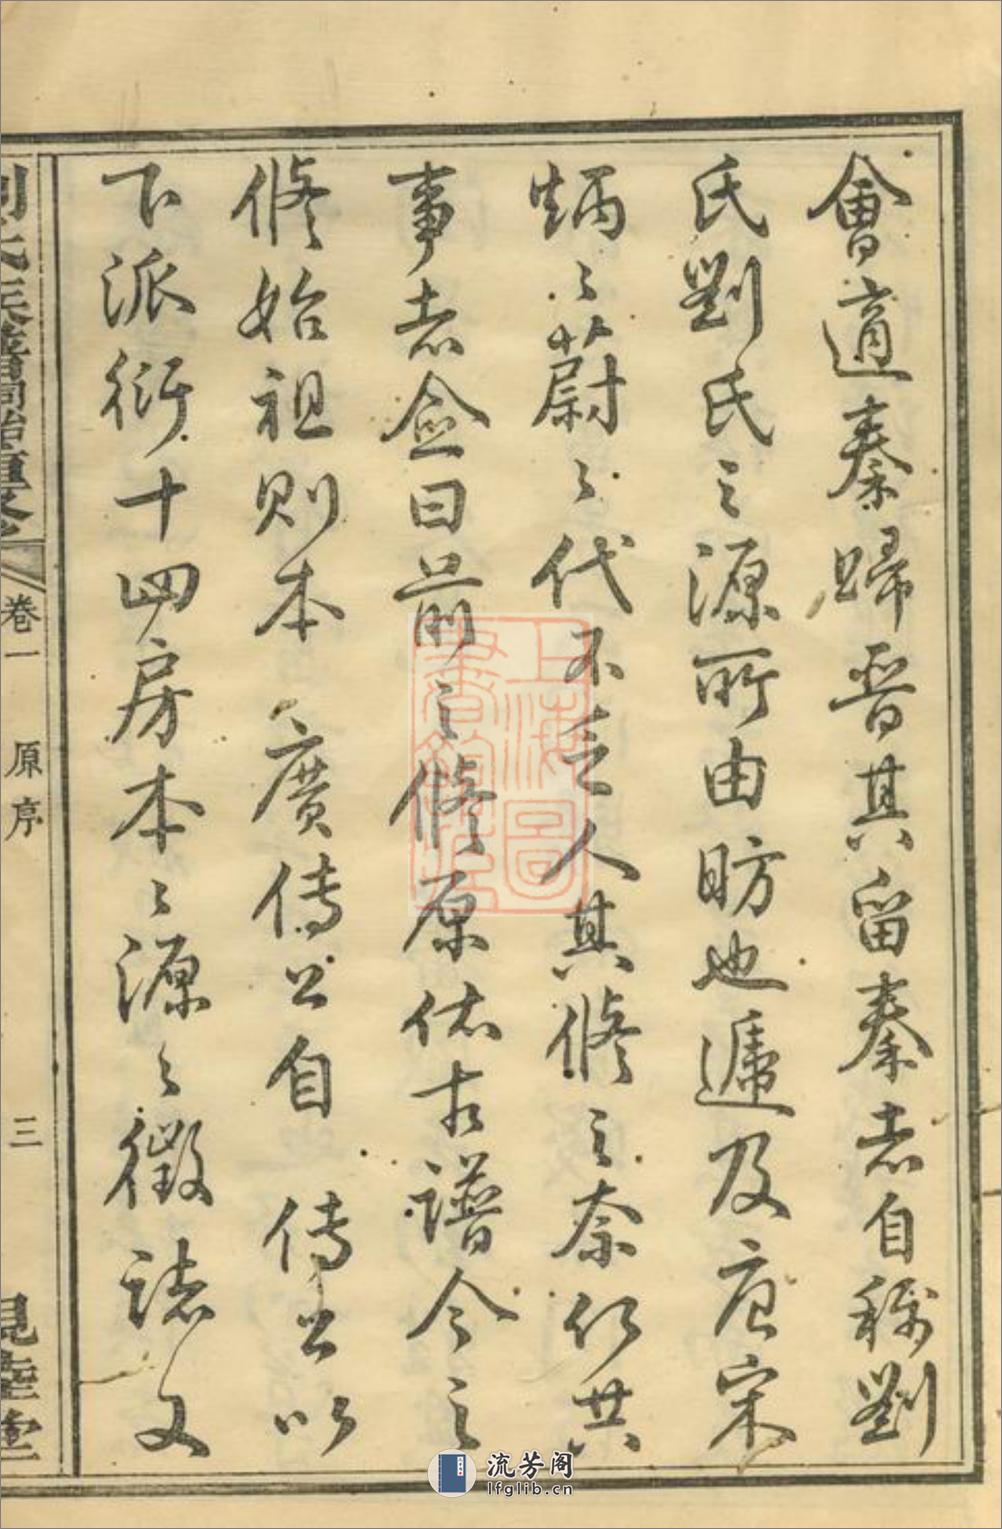 會適秦歸晉其留秦者自称劉
氏劉氏之源所由昉也遞及唐宋
炳〻蔚〻代不乏人其修之奈何共
事者僉曰前之修原依古譜今之
修始祖則本 廣傳公自 傳公以
下派衍十四房本〻源〻徵誌文
卷一 原序 三
上海圖書館藏
流芳阁
lfglib.cn